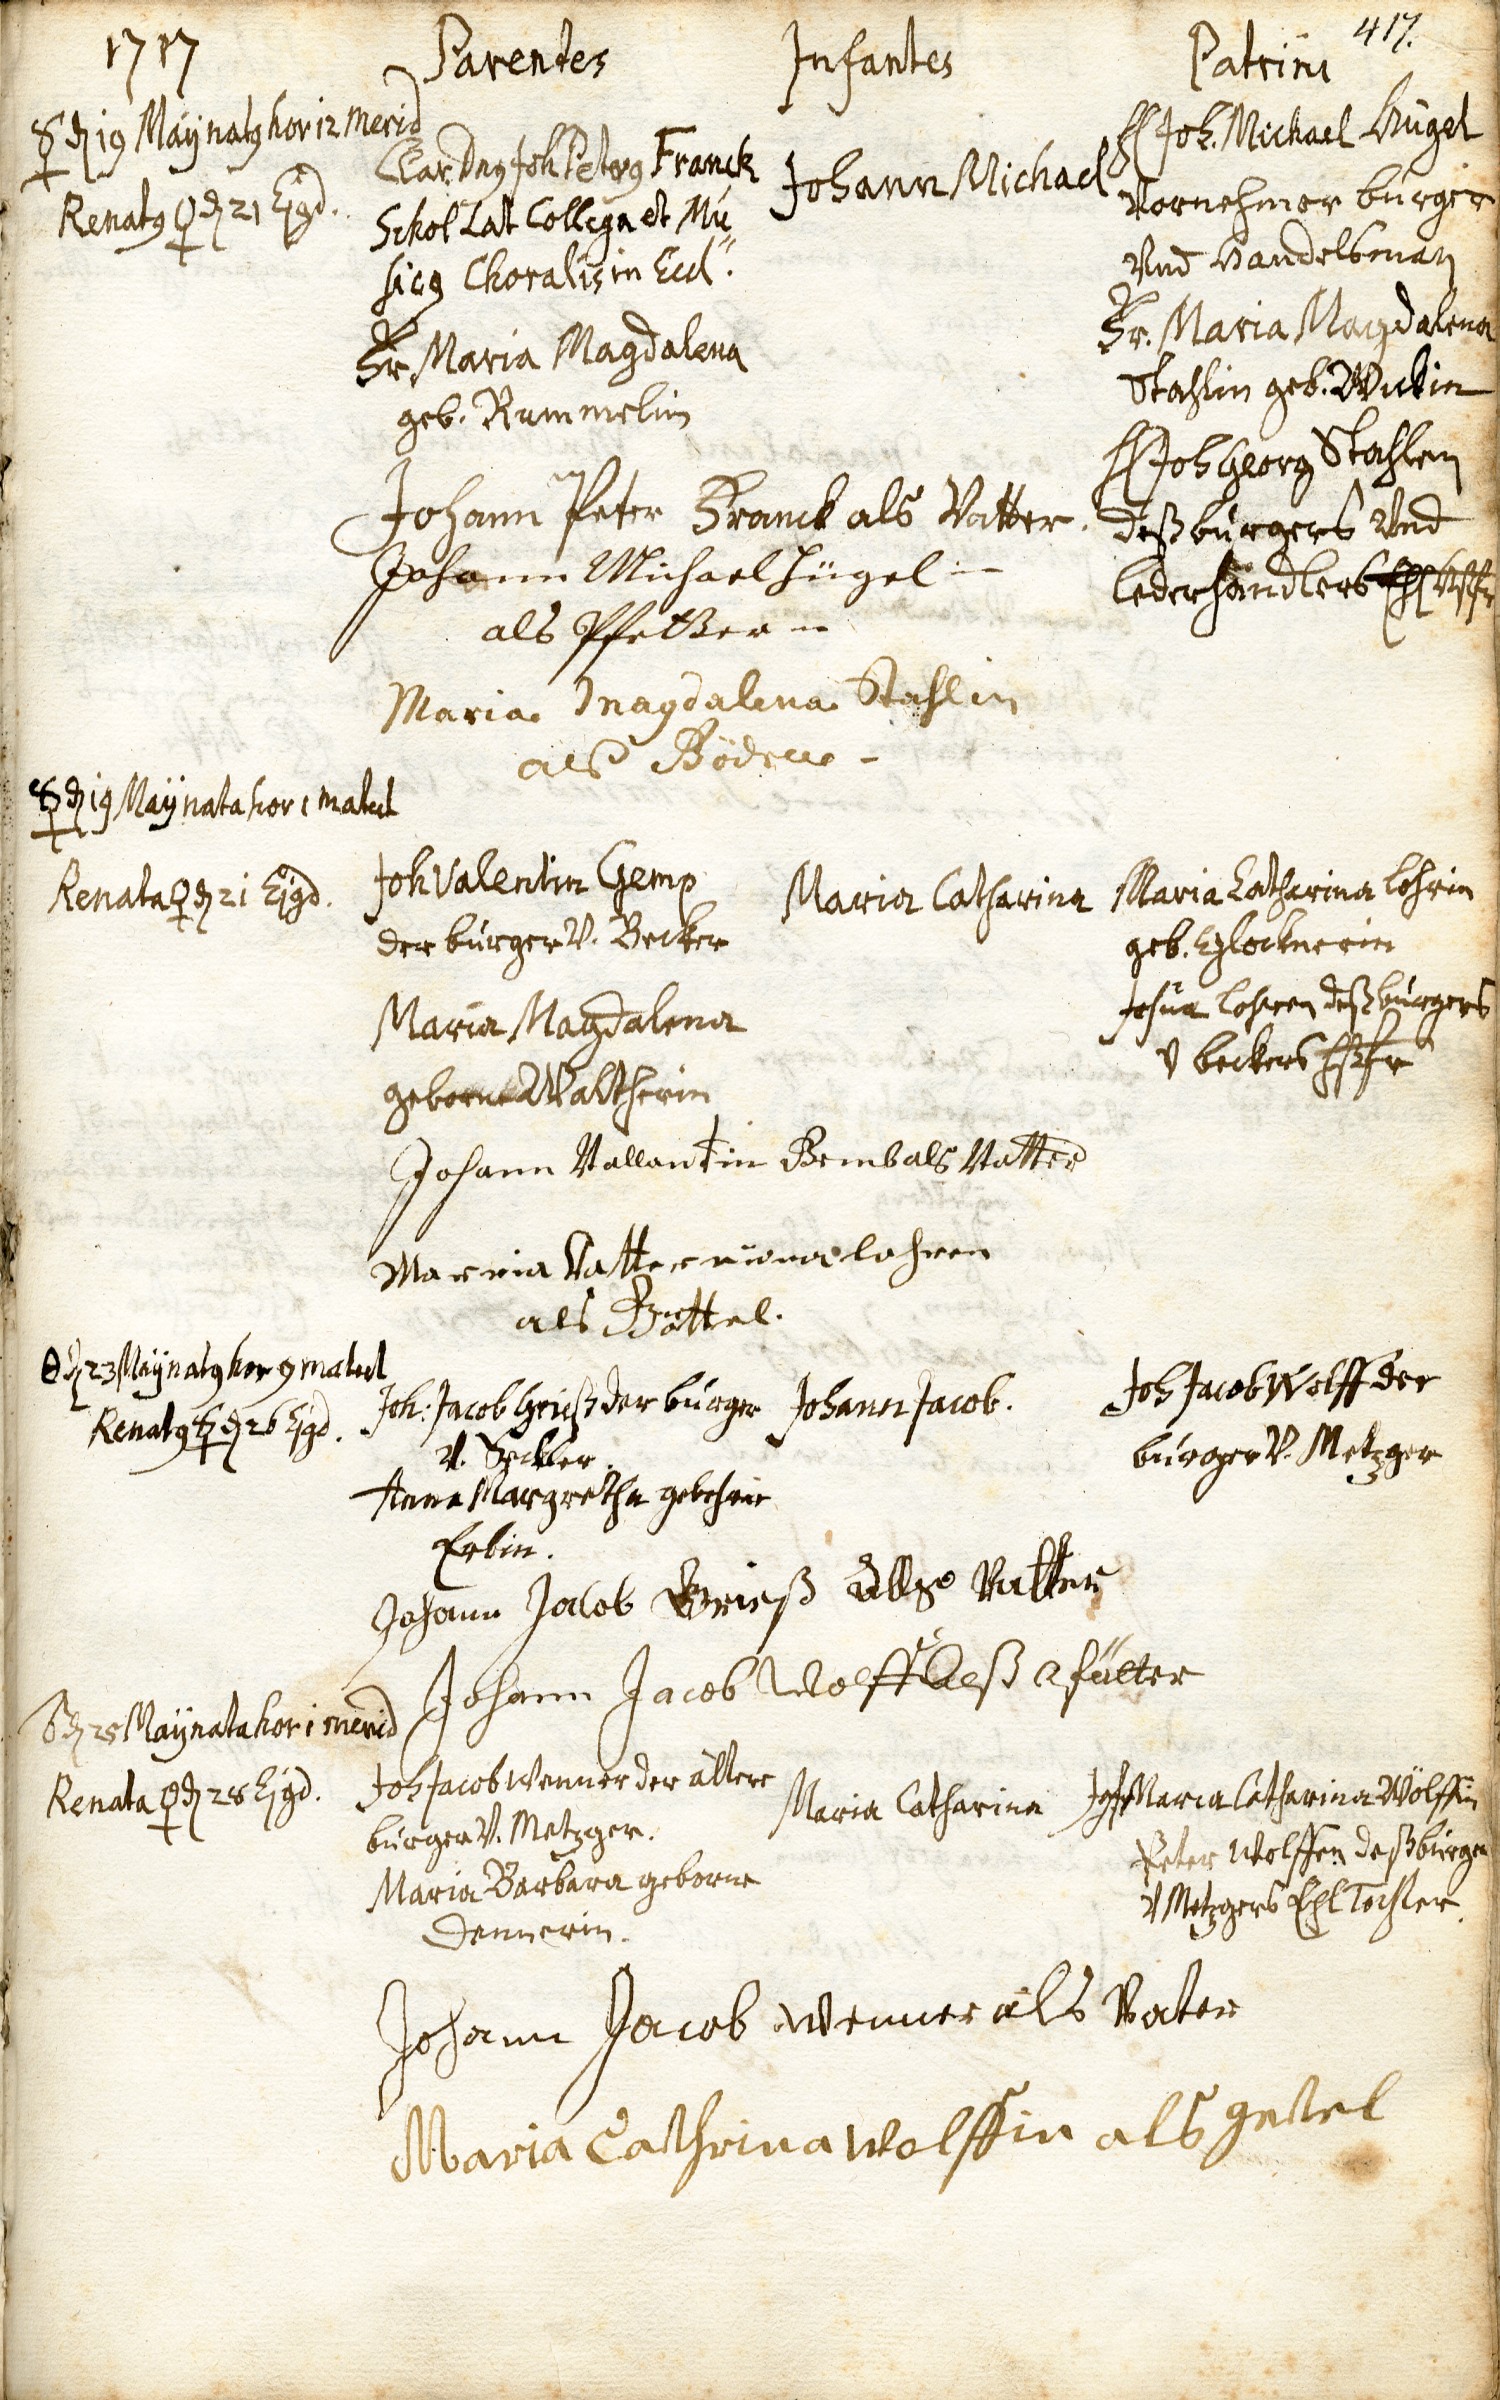 1717
Parentes
Infantes
Patrini
417.
☿ d. 19 Maÿ natus hor 12 merid
Renatus ♀ d. 21 Ejusd.
Clar. Dnus Joh Petrus Franck
Schol Lat Collega et Mu
sicus Choralis in Eccl.
Fr. Maria Magdalena
geb. Rummelin
Johann Michael
H Joh. Michael Hügel
Vornehmer bürger
Und Handelsman
Fr. Maria Magdalena
Stahlin geb.
H Joh Georg Stahlen
deß bürgers Und
lederhändlers
Johann Peter Franck als Vatter.
Johann Michael Hügel
als Pfetter
Maria Magdalena Stahlin
als
☿ d. 19 Maÿ nata hor 1 matut
Renata ♀ d. 21 Ejusd.
Joh Valentin Gemp
der bürger V. Becker
Maria Magdalena
geborne Waltherin
Maria Catharina
Maria Catharina Lohrin
geb. Glocknerin
Josua Lohren deß bürgers
V beckers
Johann Vallantin Gemb als Vatter
Marria lohren
als Göttel.
☉ d. 23 Maÿ natus hor 9 matut
Renatus ☿ d. 26 Ejusd.
Joh: Jacob Grieß der bürger
V. Seckler.
Anna Margretha gebohrne
Erbin.
Johann Jacob.
Joh Jacob Wolff der
bürger V. Metzger
Johann Jacob Grieß Vatter
Johann Jacob Wolff alß
d. 25 Maÿ nata hor 1 merid
Renata ♀ d. 28 Ejusd.
Joh Jacob Wenner der ältere
bürger V. Metzger.
Maria Barbara geborne
Dennerin.
Maria Catharina
Jgfr Maria Catharina Wölffin
Peter Wolffen deß bürger
V Metzgers Ehl Tochter.
Johann Jacob Wenner als Vater
Maria Cathrina Wolffin als getel